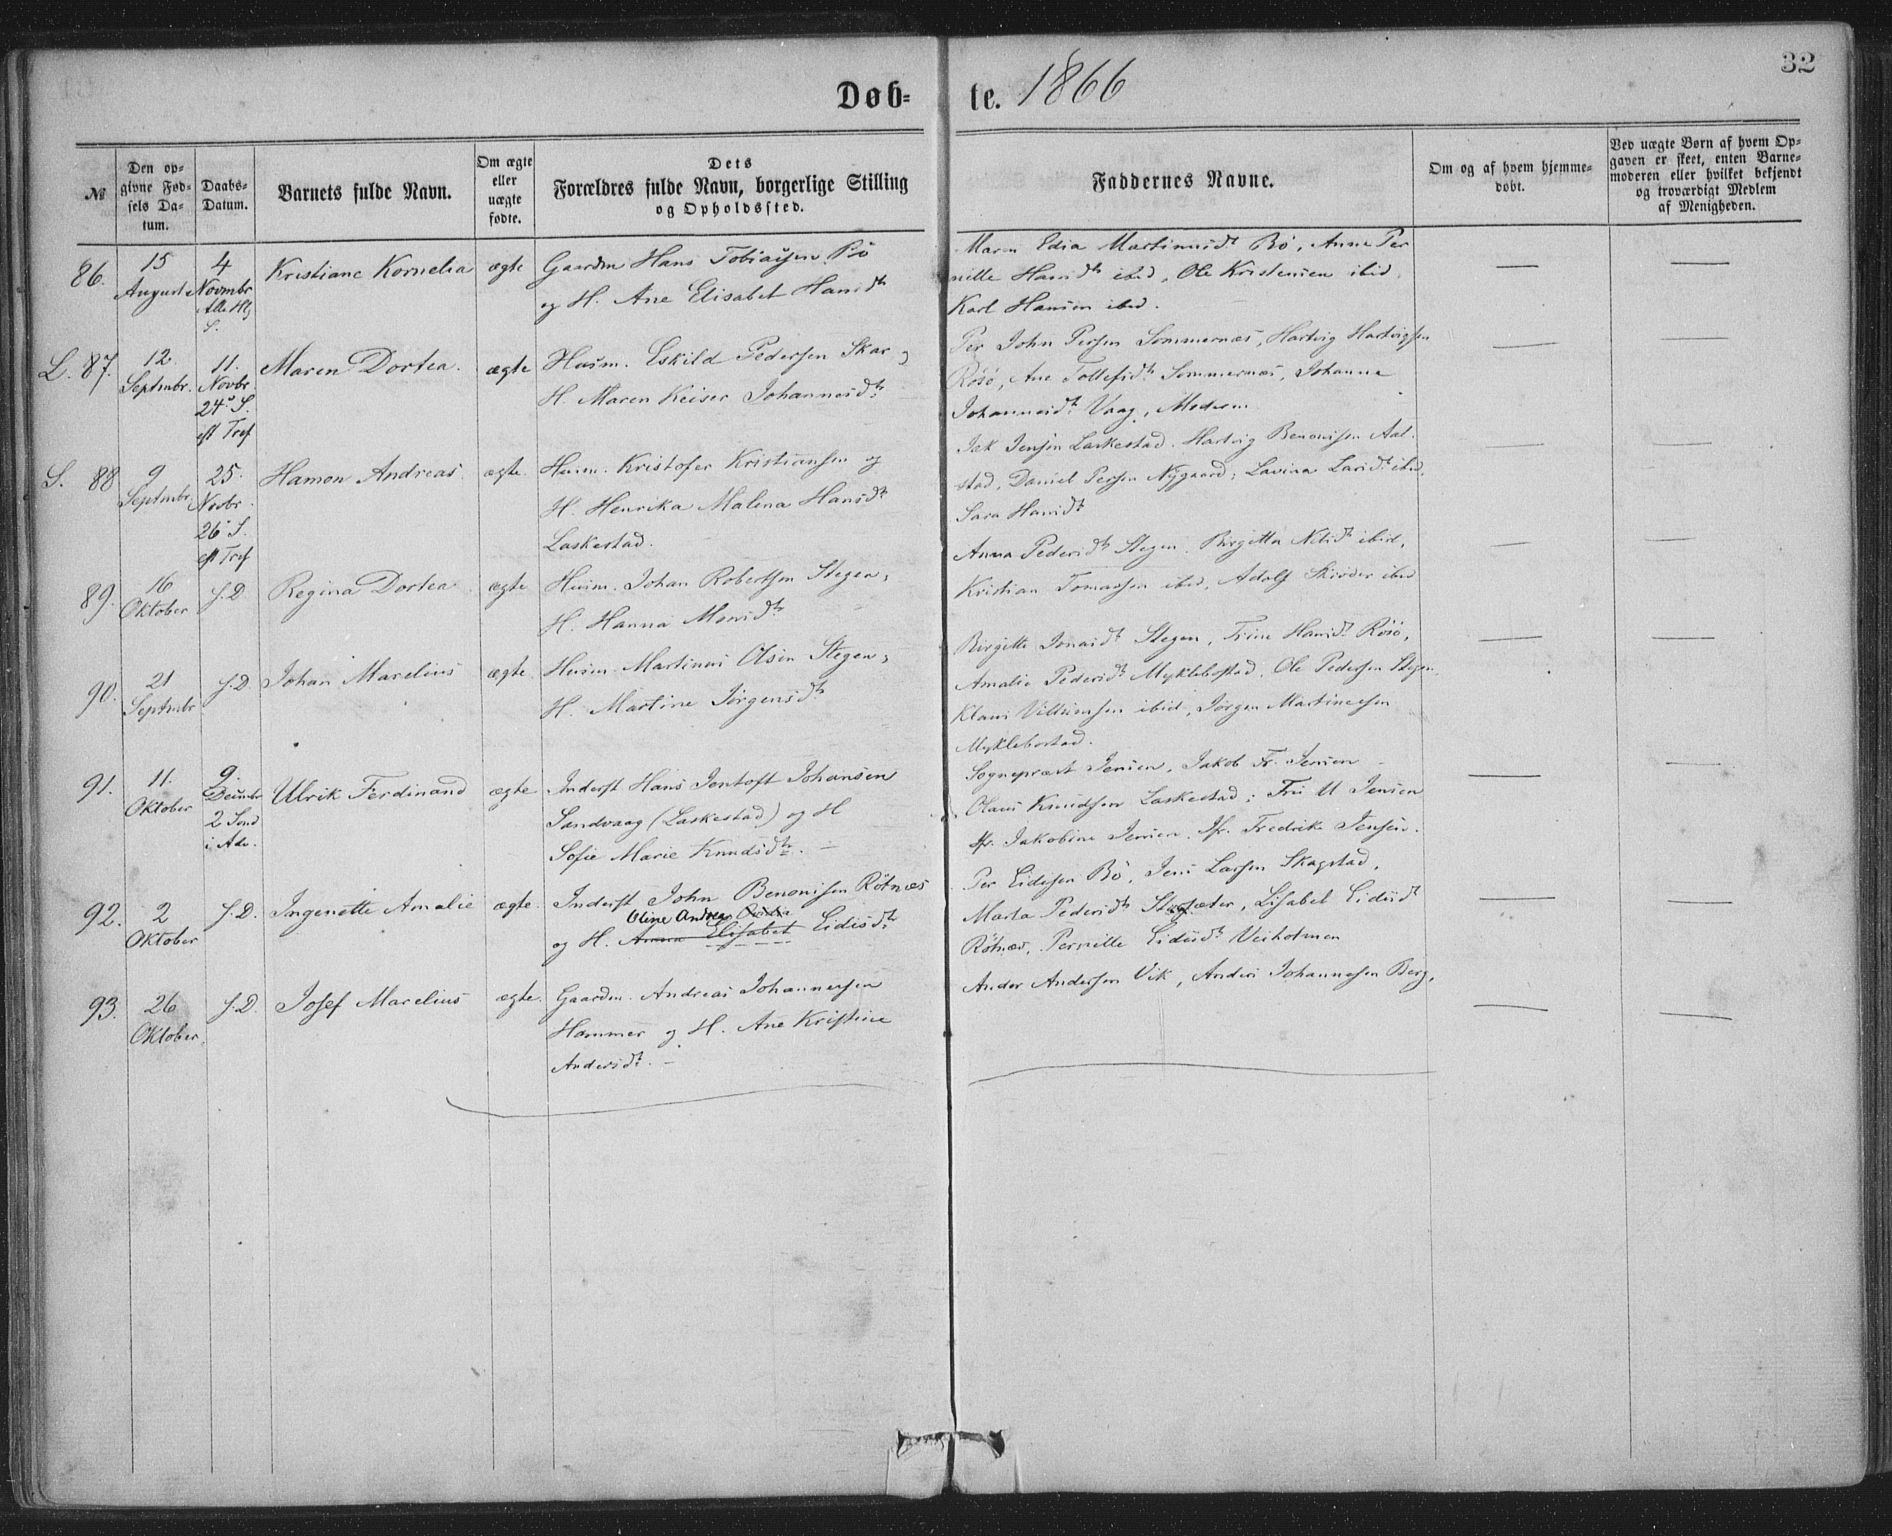 32
Døb= te. 1866
№
Den op=
givne Fød=
sels Da=
tum.
Daabs=
Datum.
Barnets fulde Navn.
Om ægte
eller
uægte
fødte.
Dets
Forældres fulde Navn, borgerlige Stilling
og Opholdssted.
Faddernes Navne.
Om og af hvem hjemme=
døbt.
Ved uægte Børn af hvem Op=
gaven er skeet, enten Barne=
moderen eller hvilket bekjendt
og troværdigt Medlem
af Menigheden.
86.
15
August
4
Novmbr
Alle Hlg
S.
Kristiane Kornelia
ægte
Gaardm Hans Tobiassen Bö
og H. Ane Elisabet Hansdtr
Maren Edia Martinusdt Bö, Anne Per
nille Hansdtr ibid, Ole Kristensen ibid,
Karl Hansen ibid.
L. 87.
12
Septmbr.
11.
Novbr.
24. S.
eft Tref
Maren Dortea.
ægte
Husm. Eskild Pedersen Skar og
H. Maren Keiser Johannesdtr
Per John Persen Sommernæs, Hartvig Hartvigsen
Rösö, Ane Tollefsdtr Sommernæs, Johanna
Johannesdtr Vaag, Moderen
S. 88
9
Septmbr
25.
Novbr.
26. S.
eft Tref
Hamon Andreas.
ægte.
Husm. Kristofer Kristiansen og
H. Henrika Malena Hansdtr
Laskestad.
Jak Jensen Laskestad. Hartvig Benonisen Aal-
stad, Daniel Persen Nygaard; Lavina Larsdt ibid,
Sara Hansdtr
89.
16
Oktober
s. D.
Regina Dortea
ægte
Husm. Johan Robertsen Stegen,
H. Hanna Monsdtr
Anna Pedersdtr Stegen. Birgitta Nilsdt ibid,
Kristian Tomassen ibid, Adolf Skröder ibid
90.
21
Septmbr
s. D.
Johan Marelius
ægte.
Husm. Martinus Olsen Stegen,
H. Martine Jörgensdtr
Birgitte Jonasdt Stegen, Trine Hansdt Rösö,
Amalie Pedersdt Myklebostad, Ole Pedersen Stegen,
Klaus Villumsen ibid, Jörgen Martinussen
Myklebostad.
91.
11.
Oktober
9.
Decmbr
2 Sönd
i Adv.
Ulrik Ferdinand
ægte
Inderst Hans Jentoft Johansen
Sandvaag (Laskestad) og H
Sofie Marie Knudsdtr. –
Sogneprest Jensen, Jakob Fr. Jensen
Olaus Knudsen Laskestad; Fru U Jensen
Jfr. Jakobine Jensen, Jfr. Fredrike Jensen.
92.
2
Oktober
s. D.
Ingenette Amalie
ægte.
Inderst John Benonisen Rötnæs
Oline Andrea
og H. Anna Elisabet Eidisdtr
Per Eidisen Bö, Jens Larsen Skagstad,
Marta Pedersdtr, Lisabet Eidisdt
Rötnæs, Pernille Eidisdtr Veiholmen
93.
26
Oktober.
s. D.
Josef Marelius
ægte.
Gaardm. Andreas Johannesen
Hammer og H. Ane Kristine
Andersdtr. –
Ander Andersen Vik, Anders Johannesen Berg,